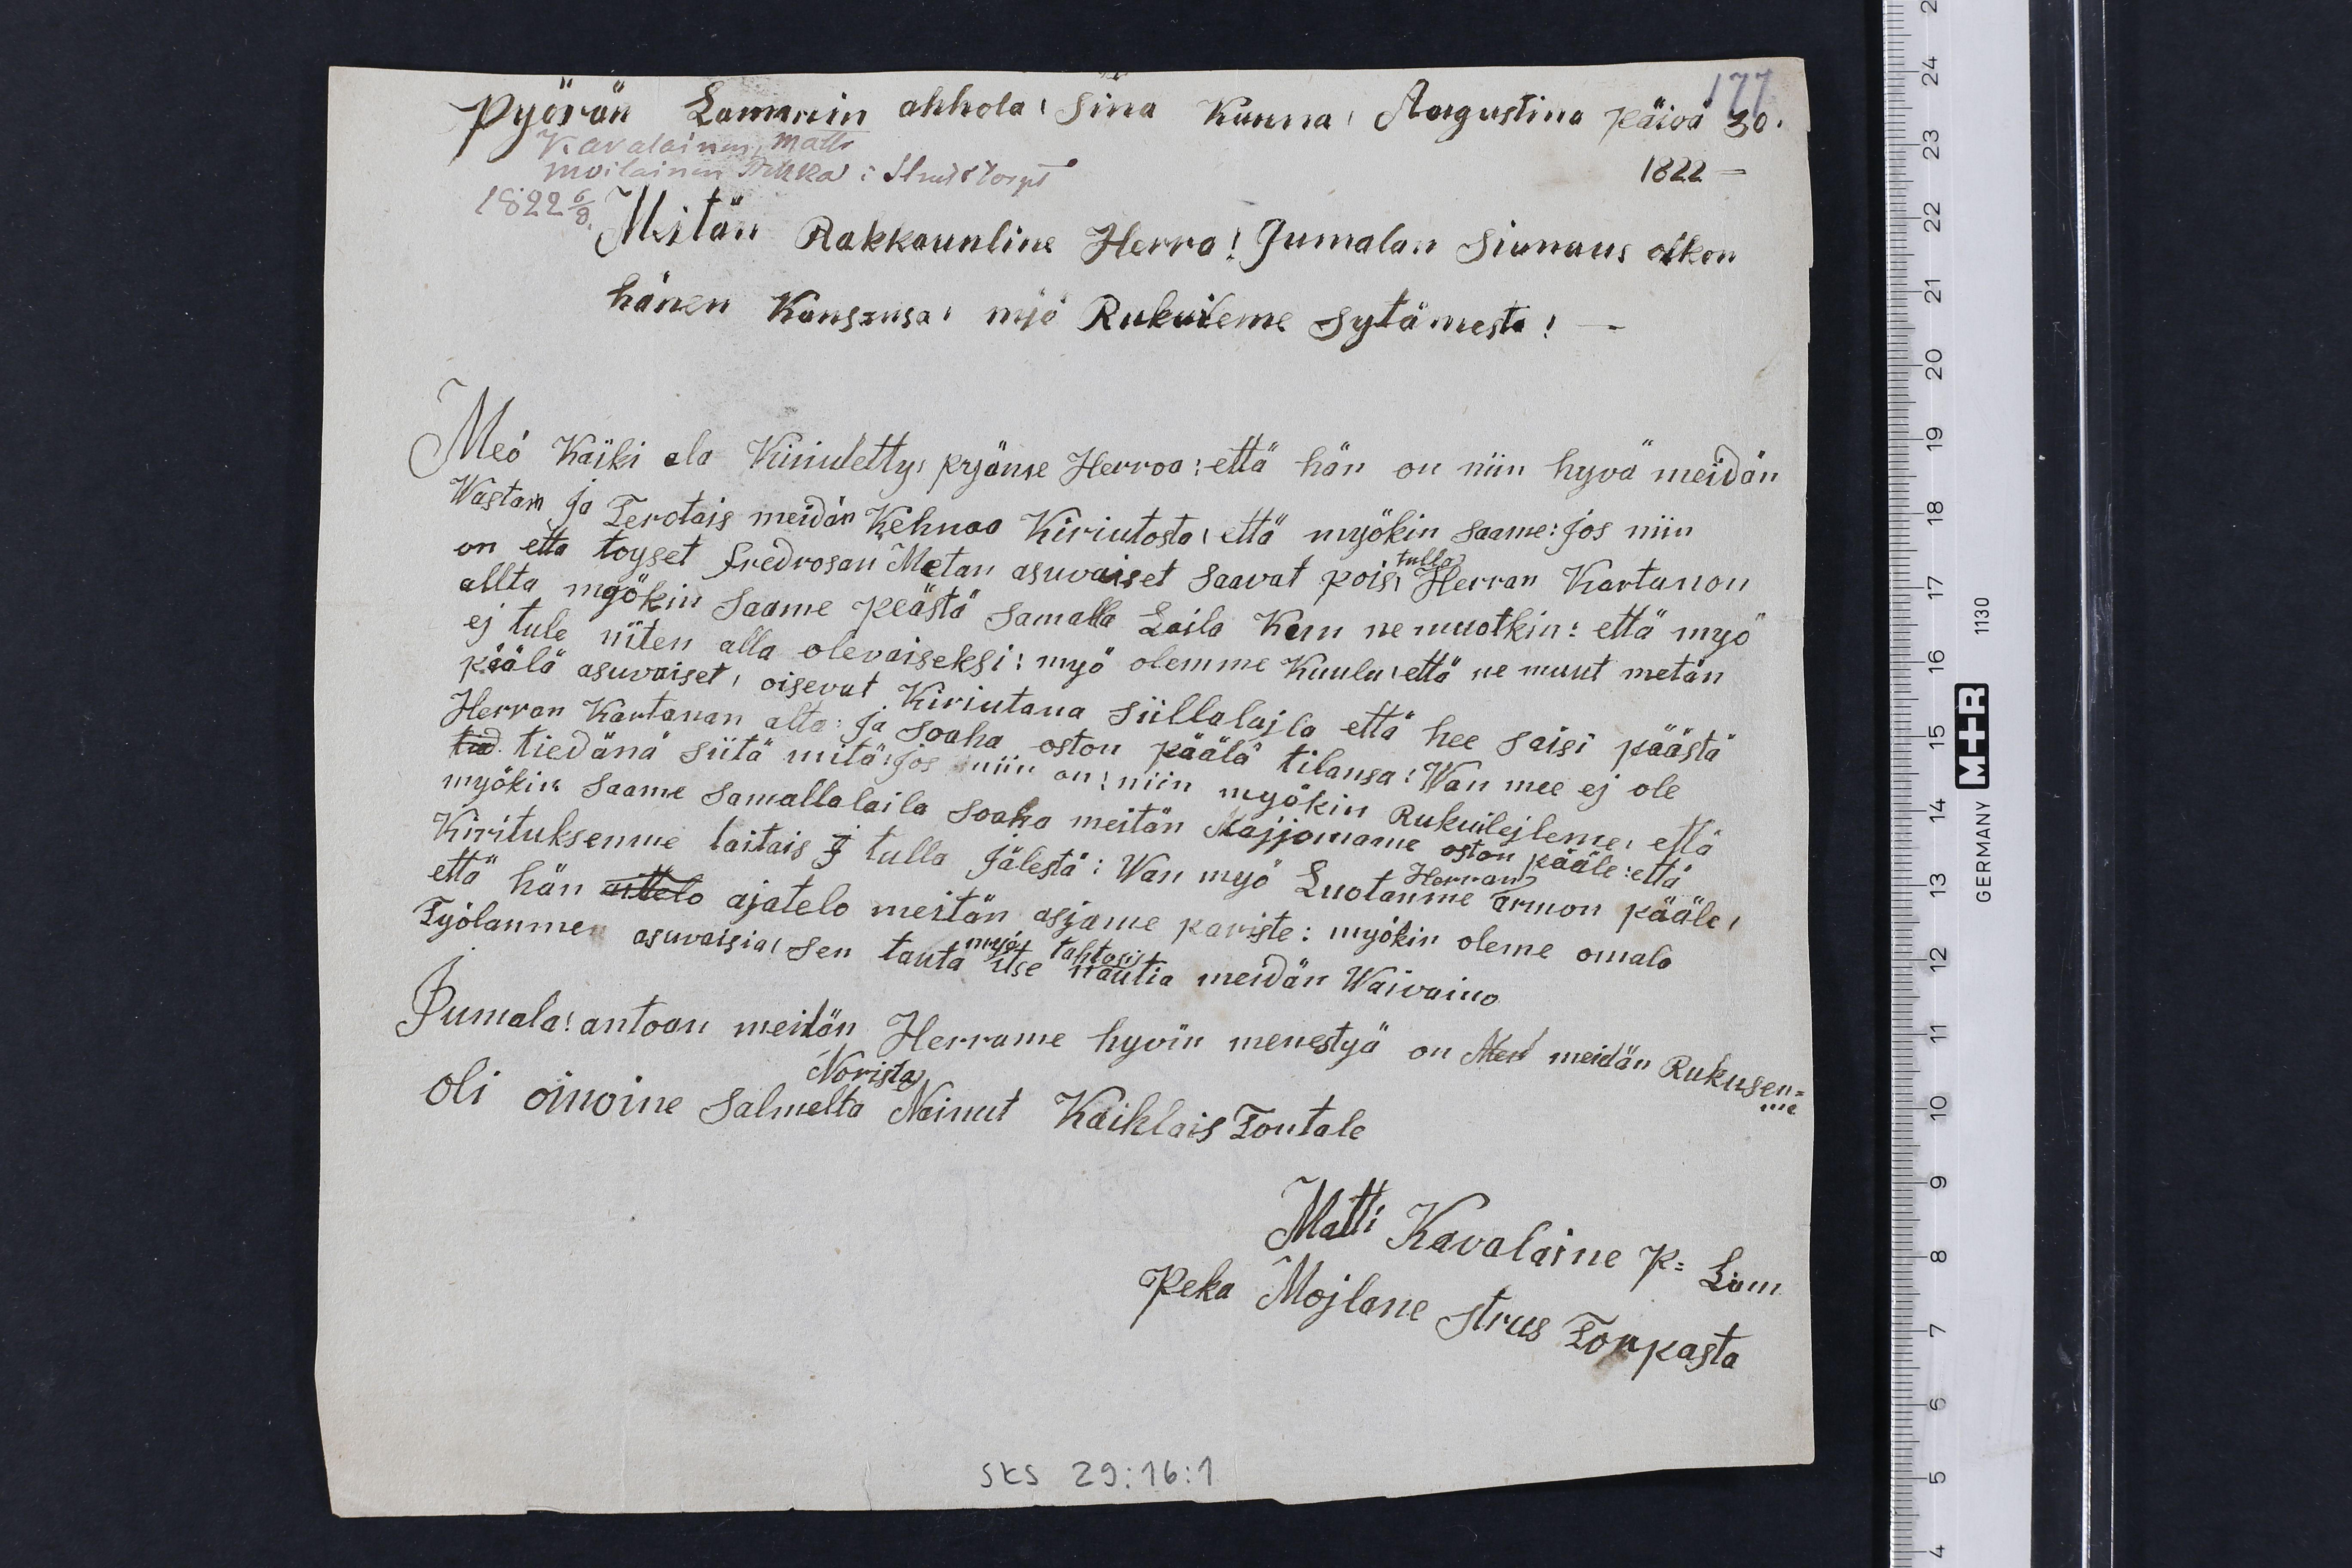 177
Pyörän Lammin ahhola: Sina Kuuna: Augustina päivä 30.
Kavalainen, Matti
Moilainen Pekka: Strustorpt
1822 —
1822 6/8.
Meitän Rakkaunline Herra! Jumalan Siunaus olkon
hänen Kansansa: myö Rukuileme Sytämestä! —
Meö Käiki ala Kiriutettys pyänse Herroa: että hän on niin hyvä meidän
Wastam ja Terotais meidän Kehnoo Kiriutosta: että myökin saame: jos niin
on etta toyset fredrosan Metan asuvaiset Saavat pois tulla Herran Kartanon
allta myökin Saame peästä Samalla Laila Kun ne muotkin: että myö
ej tule niiten alla olevaiseksi: myö olemme Kuulu: että ne muut metän
päälä asuvaiset, oisevat Kiriutana Siillalajla että hee Saisi päästä
Herran Kartanan alta: ja Soaha oston päälä tilansa: Wan mee ej ole
tied. tiedänä Siitä mitä: jos niin on: niin myökin Rukuilejleme: että
myökin Saame Samallalaila Soaha meitän Majjomame oston pääle: että
Kirituksemme taitais J tulla Jälestä: Wan myö Luotamme Herran armon pääle:
että hän aittelo ajatelo meitän asjame pariste: myökin oleme omala
Työlanmen asuvaisia: Sen tautä myö itse tahtosit nautia meidän Waivaino
Jumala! antoan meitän Herrame hyvin menestyä on Men meidän Rukusen=
me
oli oinoine Salmelta Norista Nainut Kaiklais Toutale
Matti Kavalaine P= Lam
Peka Mojlane Strus Torpasta
SKS 29:16:1
GERMANY M+R 1130
24
23
22
21
20
19
18
17
16
15
14
13
12
11
10
9
8
7
6
5
4